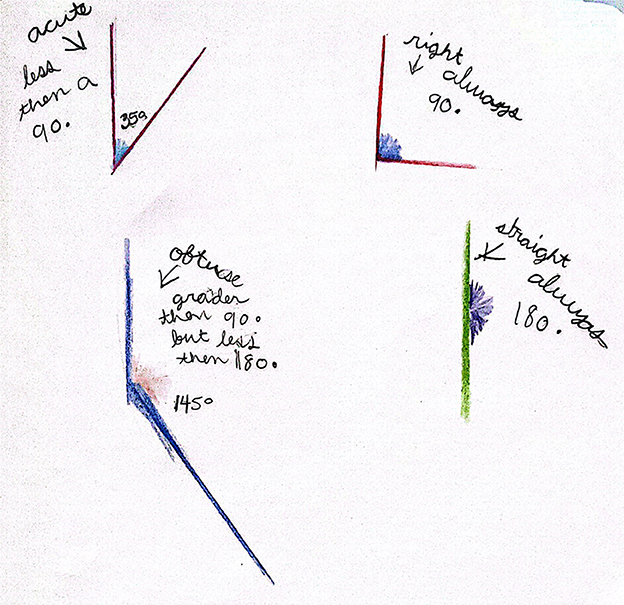 acute
less
then a
90.
35°
right
always
90.
obtuse
grader
then 90.
but less
then 180.
145°
straight
always
180.